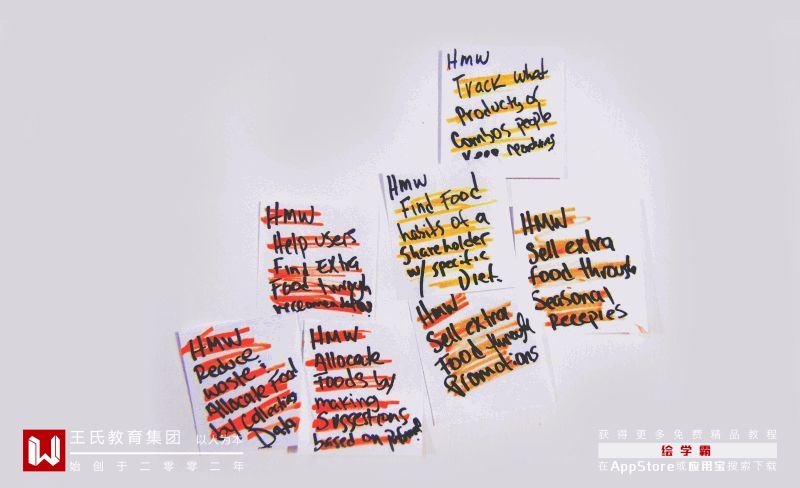 HMW
Track what
Products or
Combos people
HMW
Find Food
habits of a
Shareholder
w/ specific
Diet.
HMW
Sell extra
food through
Seasonal
Recepies
HMW
Help users
Find Extra
Food through
HMW
Sell extra
Food through
Promotions
HMW
Reduce
waste:
Allocate Food
Collecting
Data
HMW
Allocate
Foods by
making
Suggestions
based on
王氏教育集团 以人为本
始创于二零零二年
获得更多免费精品教程
绘学霸
在AppStore或应用宝搜索下载